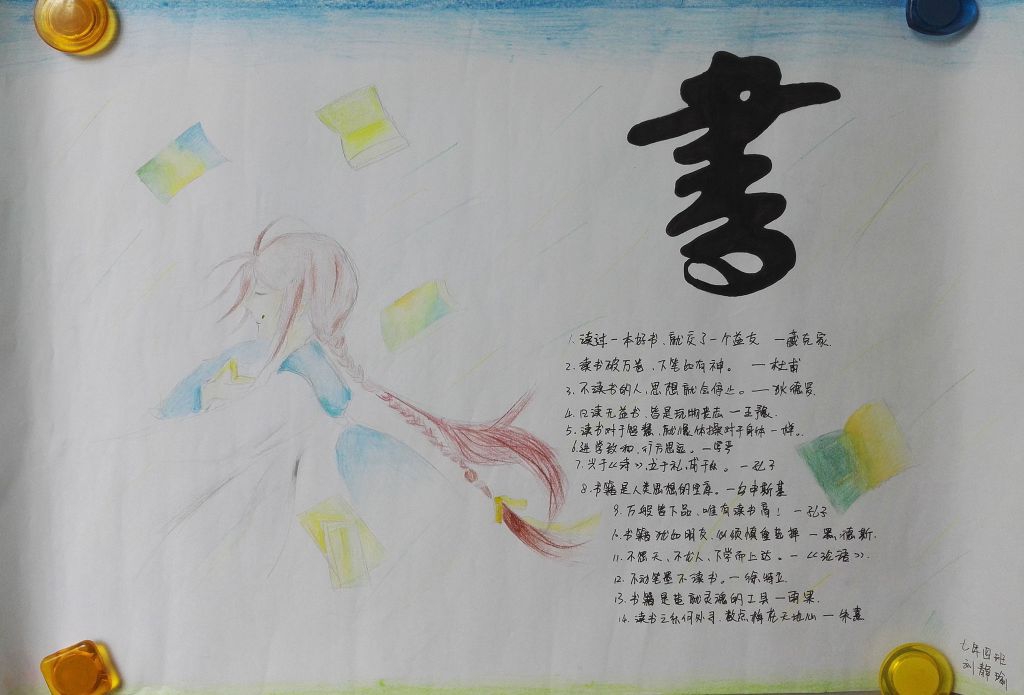 書
1. 读过一本好书、就交了一个益友 —臧克家.
2. 读书破万卷、下笔如有神。 —杜甫
3. 不读书的人,思想就会停止。 —狄德罗.
4. 只读无益书、皆是玩物丧志 —王豫.
5. 读书对于智慧、就像体操对于身体一样。
6. 进学致和、行方思远。 —
7. 兴于《诗》,立于礼,成于乐。 —孔子
8. 书籍是人类思想的宝库。 —乌申斯基
9. 万般皆下品、唯有读书高! —孔子
10. 书籍犹如朋友、必须慎重选择 —黑德斯.
11. 不怨天、不尤人、下学而上达。 —《论语》.
12. 不动笔墨不读书。 —徐特立
13. 书籍是造就灵魂的工具 —雨果.
14. 读书之乐何处寻、数点梅花天地心 —朱熹
七年四班
刘静瑜